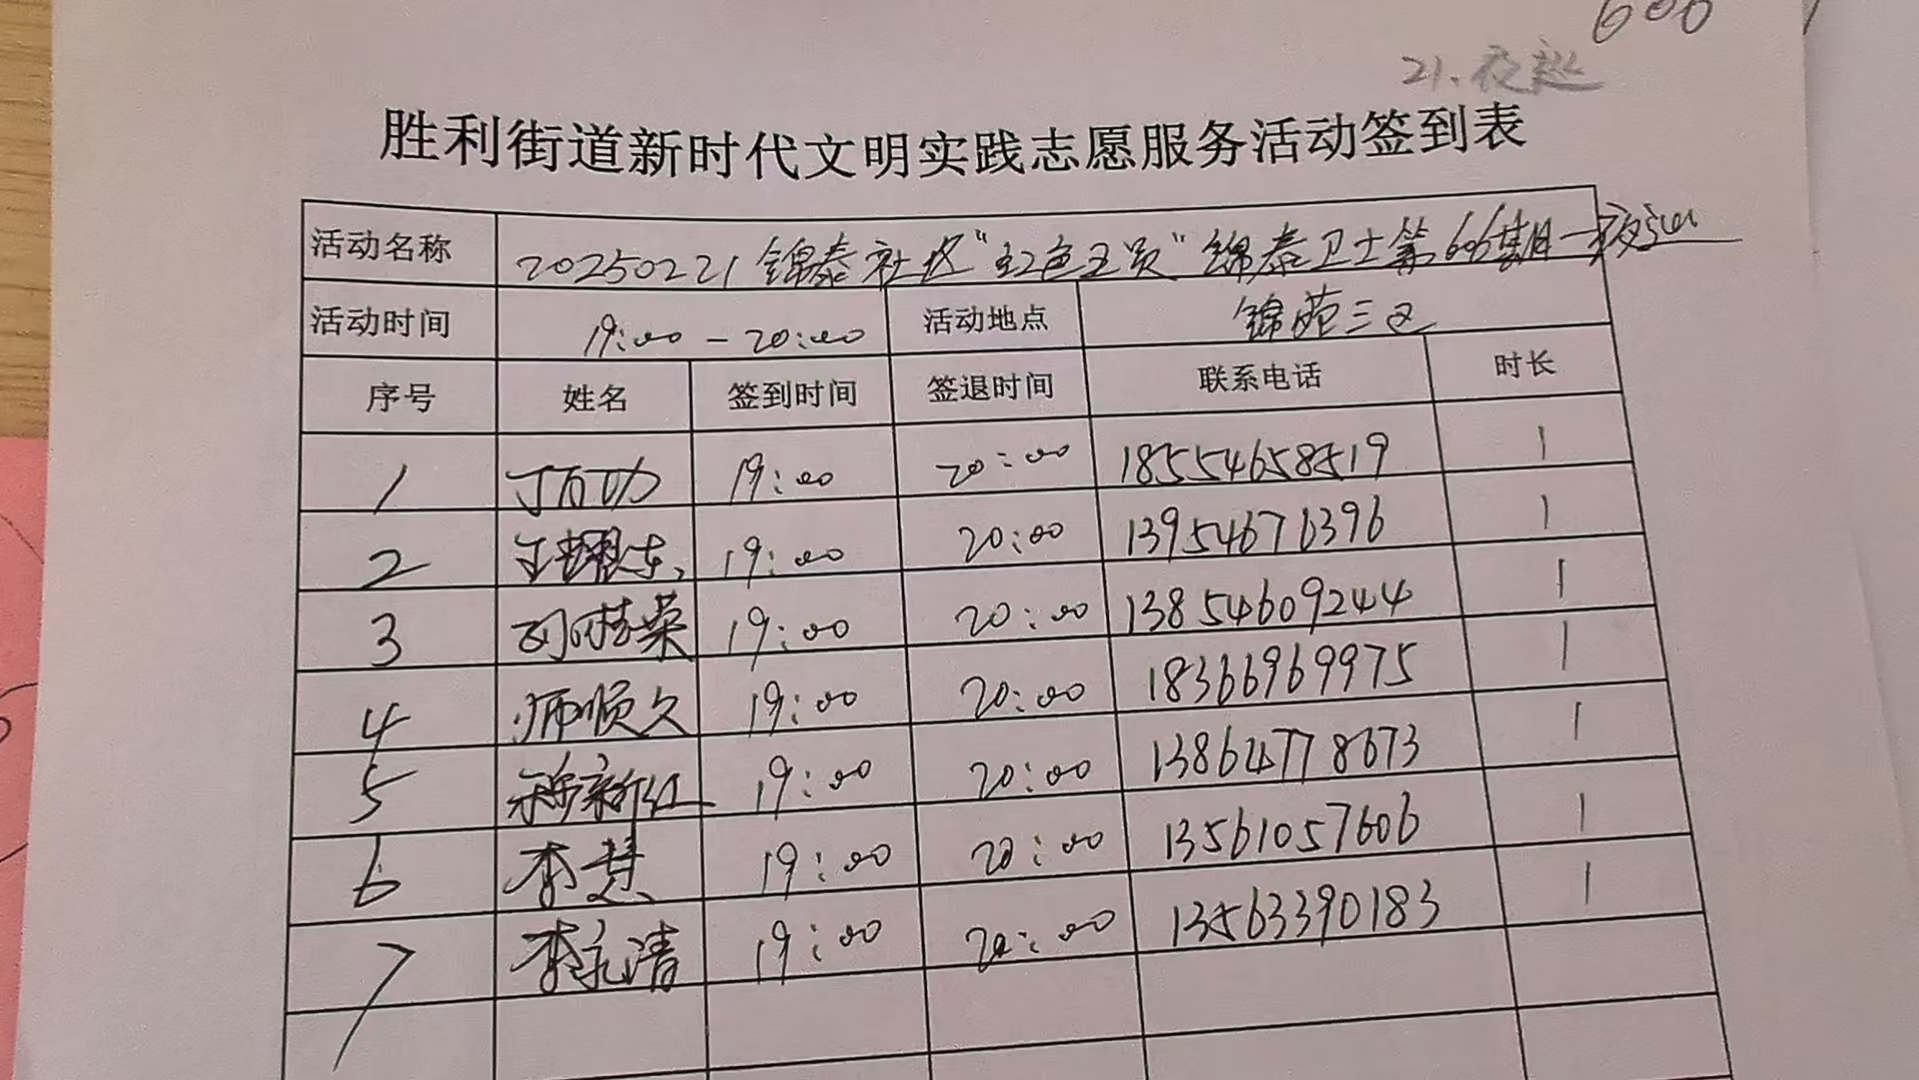 606
21.夜巡
胜利街道新时代文明实践志愿服务活动签到表
活动名称 20250221锦泰社区"红色王员"锦泰卫士第606期—夜巡
活动时间 19:00-20:00 活动地点 锦苑三区
序号 姓名 签到时间 签退时间 联系电话 时长
1 丁百功 19:00 20:00 18554658519 1
2 19:00 20:00 13954676396 1
3 刘桂荣 19:00 20:00 13854609244 1
4 师顺久 19:00 20:00 18366969975 1
5 穆新红 19:00 20:00 13864778673 1
6 李慧 19:00 20:00 13561057606 1
7 李永清 19:00 20:00 13563390183 1